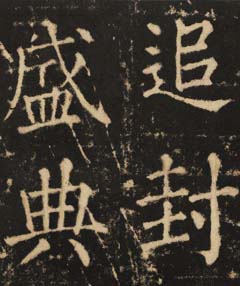 追封
盛典